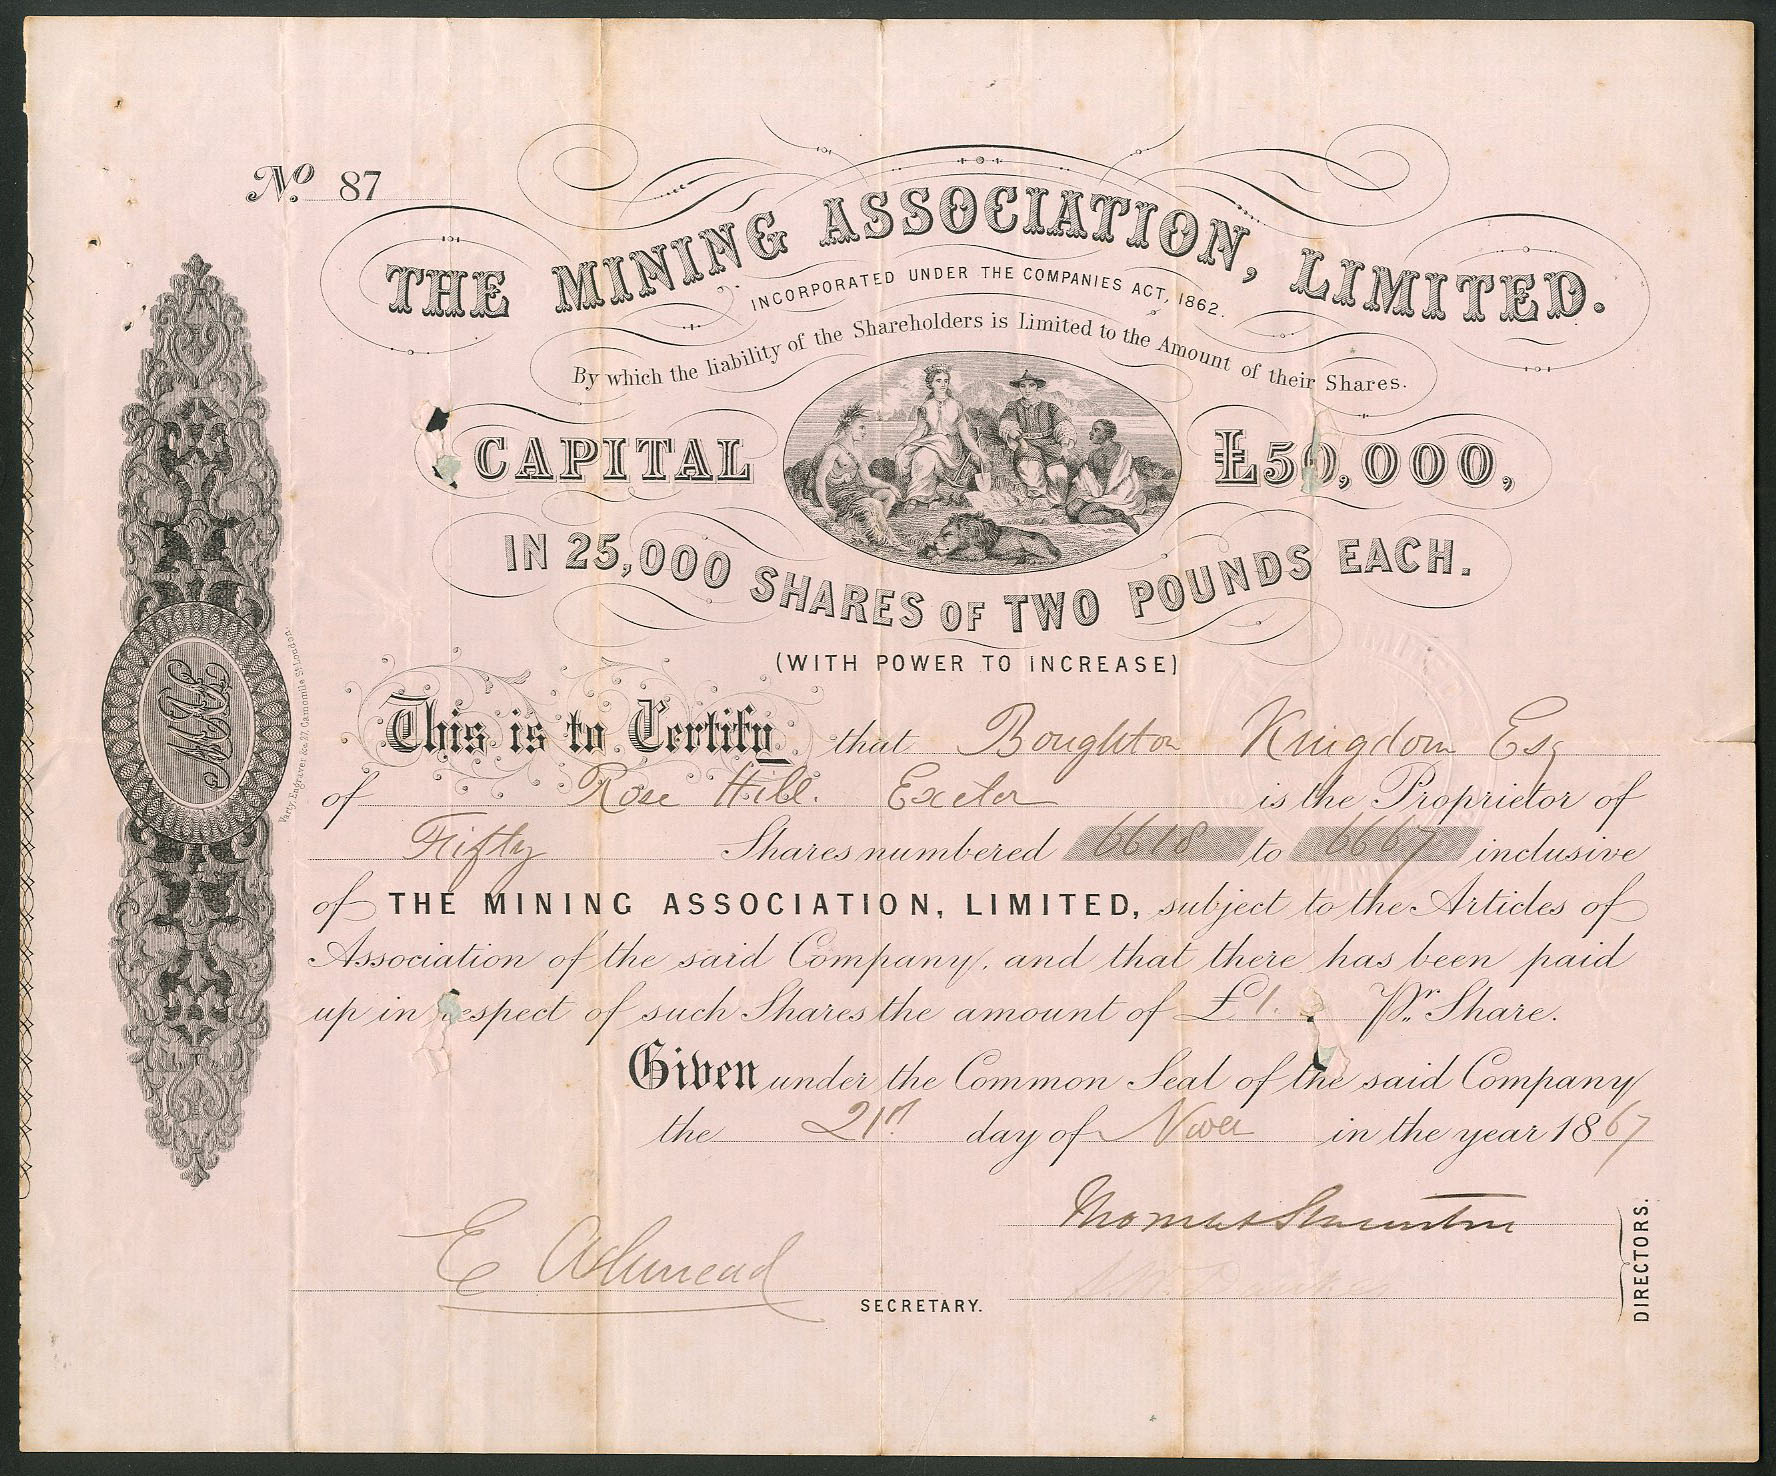 No. 87
THE MINING ASSOCIATION, LIMITED.
INCORPORATED UNDER THE COMPANIES ACT, 1862.
By which the liability of the Shareholders is Limited to the Amount of their Shares.
CAPITAL £50,000,
IN 25,000 SHARES OF TWO POUNDS EACH.
(WITH POWER TO INCREASE)
This is to Certify that Boughton Kingdom Esq
of Rose Hill. Exeter is the Proprietor of
Fifty Shares numbered 6618 to 6667 inclusive
of THE MINING ASSOCIATION, LIMITED, subject to the Articles of
Association of the said Company, and that there has been paid
up in respect of such Shares the amount of £1. Pr. Share.
Given under the Common Seal of the said Company
the 21st day of in the year 1867
Thomas
E Ashmead
SECRETARY.
DIRECTORS.
Varty, Engraver &c. 27, Camomile St. London.